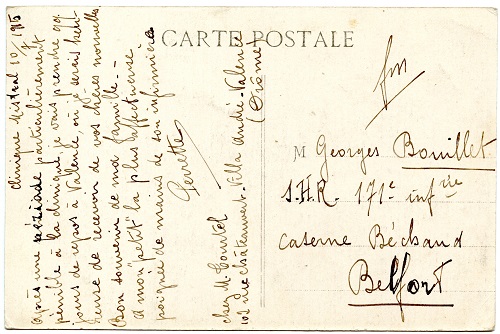 Clinique Mistral 10/7 1915
Après une période particulièrement
pénible à la clinique, je vais prendre 90
jours de repos à Valence, où je serais heu-
reuse de recevoir de vos chères nouvelles
Bon souvenir de ma famille. —
à mon "petit" la plus affectueuse
poignée de mains de son infirmière
Gervette
chez M. Courtol
102 rue châteauvert - Villa André - Valence
(Drôme)
CARTE POSTALE
fm
M Georges Bouillet
S.H.R. 171e infrie
caserne Béchaud
Belfort